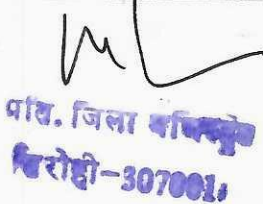 अति. जिला मजिस्ट्रेट
सिरोही-307001